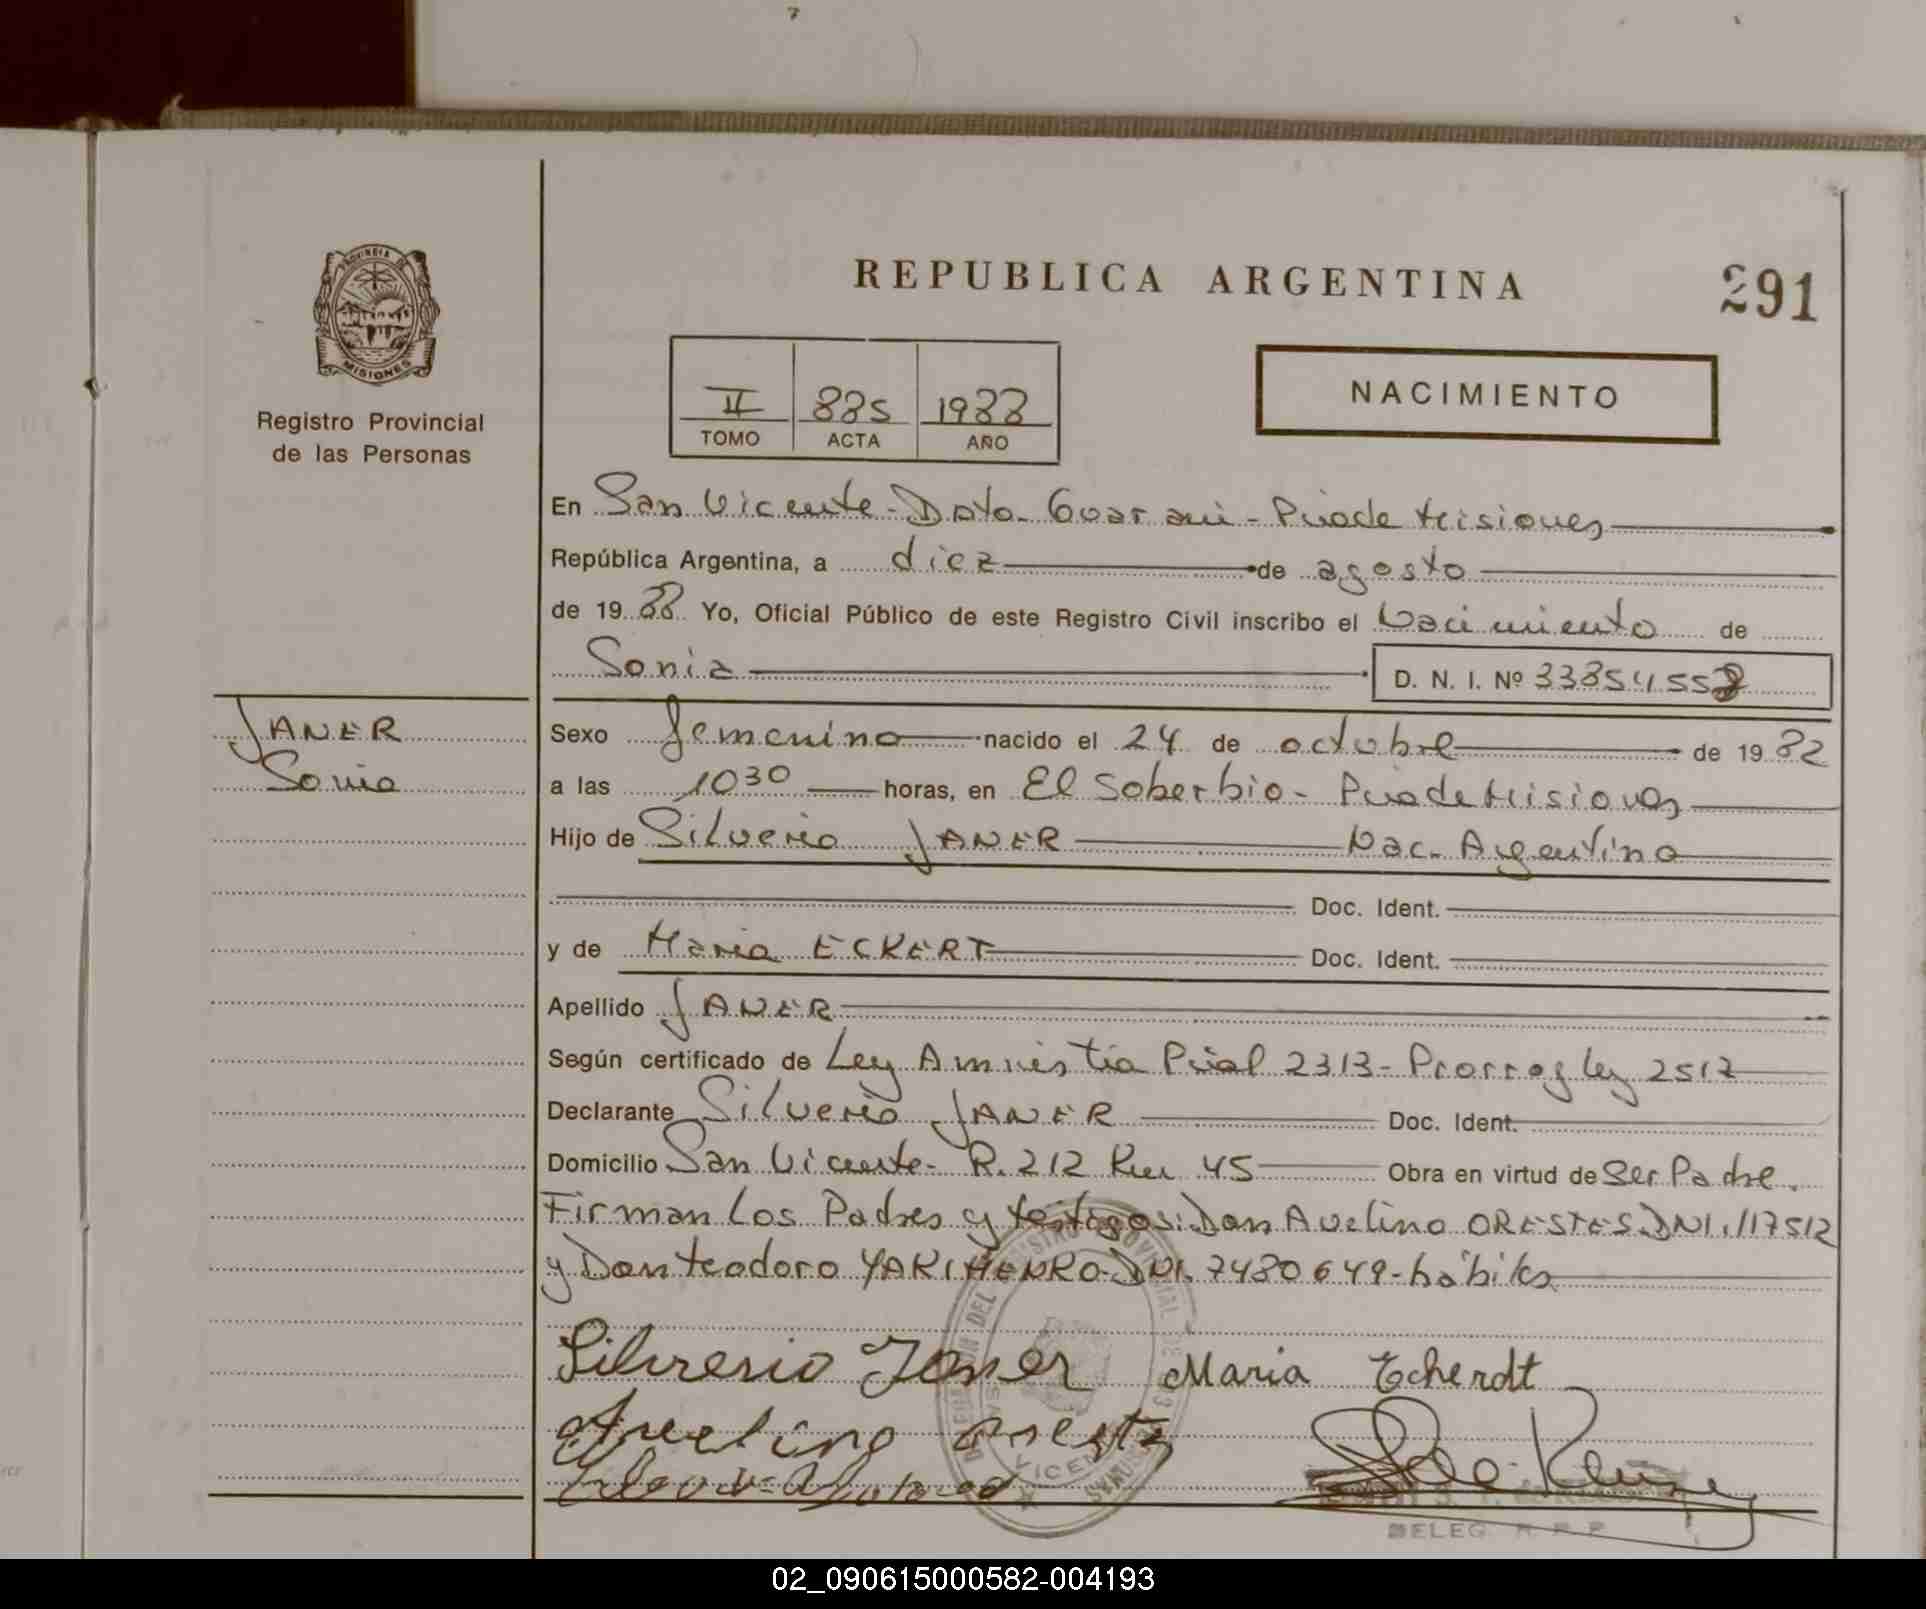 291
REPUBLICA ARGENTINA
PROVINCIA DE
MISIONES
Registro Provincial
de las Personas
II 885 1988
TOMO ACTA AÑO
NACIMIENTO
En San Vicente - Dpto. Guarani - Pciade Misiones
República Argentina, a diez de agosto
de 1988 Yo, Oficial Público de este Registro Civil inscribo el Nacimiento de
Sonia D. N. I. Nº 33854558
JANER
Sonia
Sexo femenino nacido el 24 de octubre de 1982
a las 10 30 horas, en El Soberbio - Pciade Misiones
Hijo de Silverio JANER Nac. Argentina
Doc. Ident.
y de Maria ECKERT Doc. Ident.
Apellido JANER
Según certificado de Ley Amnistia Pcial 2313 - Prorrog ley 2517
Declarante Silverio JANER Doc. Ident.
Domicilio San Vicente - R. 212 Km 45 Obra en virtud de Ser Padre.
Firman Los Padres y testigos: Don Avelino ORESTES DNI. 117512
y Don teodoro DNI. 7480649 - hábiles
Silverio Janer Maria Echerdt
Avelino Oreste
DELEG. R. P. P.
02_090615000582-004193